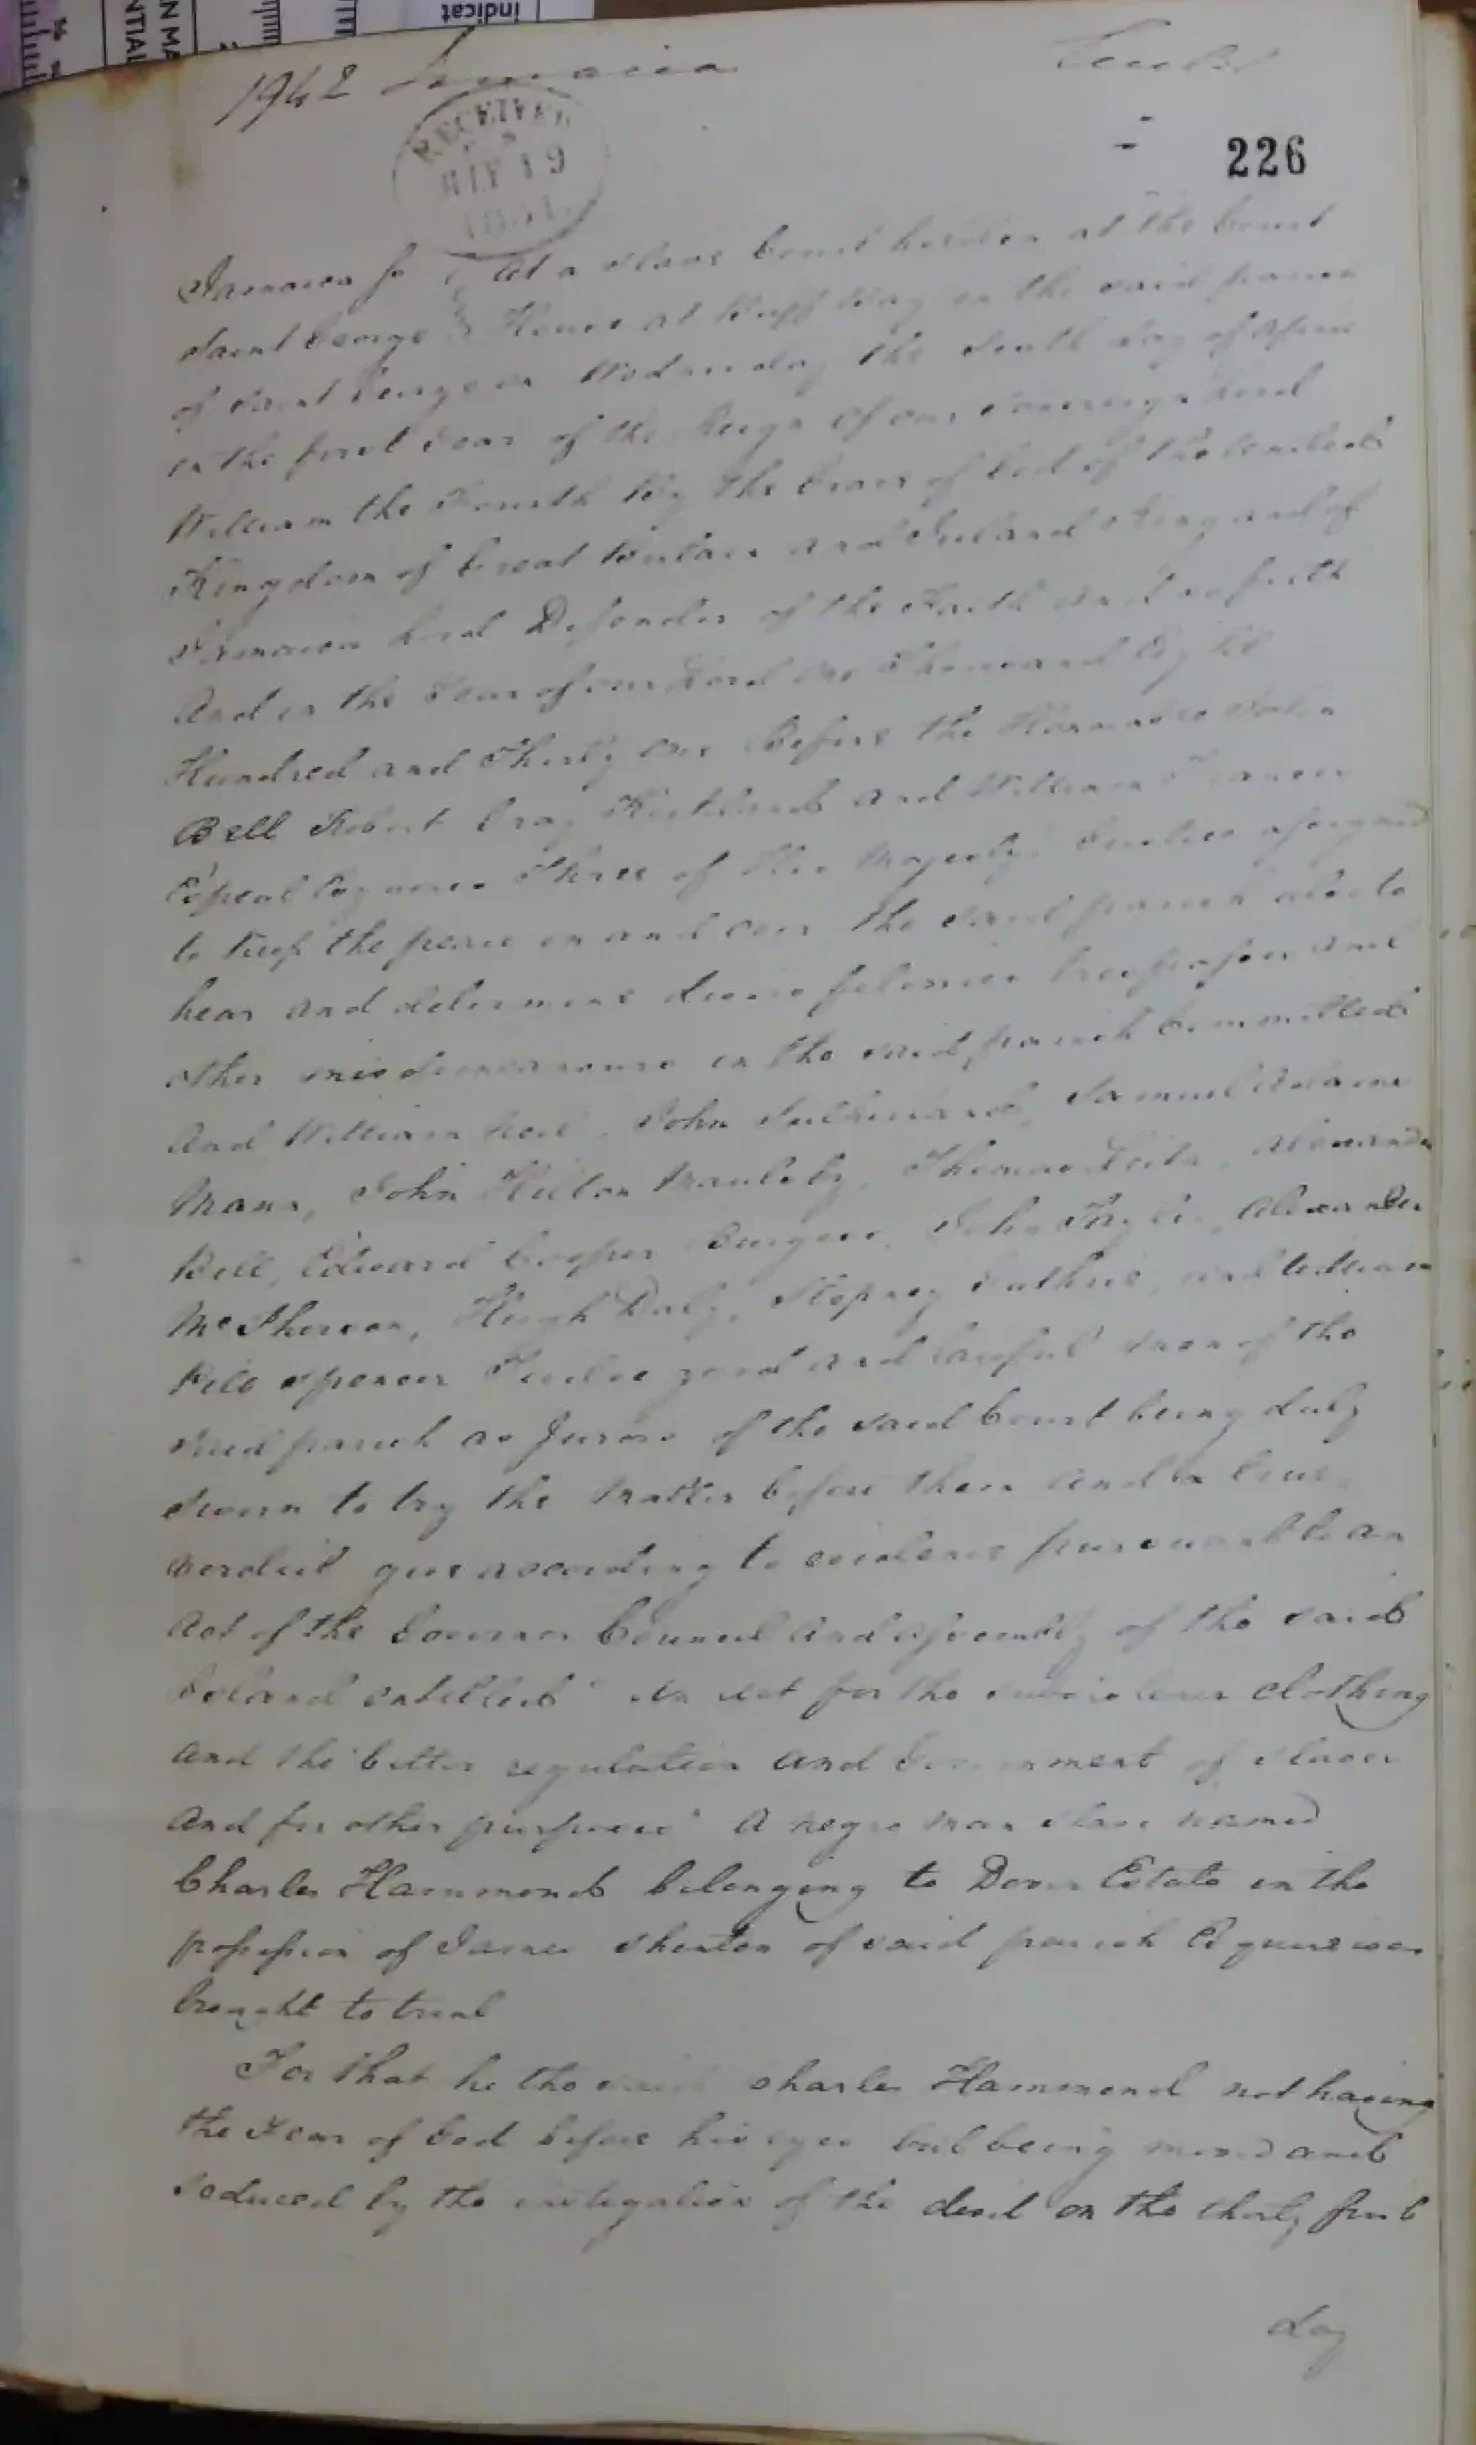 1942 Jamaica
RECEIVED
226
Jamaica ss At a Slave Court holden at the Court
Saint George House at Buff Bay in the said parish
of Saint George on Wednesday the day of
in the first Year of the Reign of our Sovereign Lord
William the Fourth by the Grace of God of the United
Kingdom of Great Britain and Ireland King and of
Jamaica Lord Defender of the Faith and so forth
And in the Year of our Lord One Thousand Eight
Hundred and Thirty One Before the Honorable John
Bell Robert Gray Kirkland and William Francis
Esquires Three of His Majesty's Justices assigned
to keep the peace in and over the said parish also to
hear and determine divers felonies trespasses and
other misdemeanours in the said parish Committed
And William John Sutherland, Samuel Adams
Mann, John Hilton Thomas Alexander
Bell, Edward Cooper Burgess, John Taylor, Alexander
McPherson, Hugh Daly, Stopney Guthrie, and William
Spencer Twelve good and lawful men of the
said parish as Jurors of the said Court being duly
sworn to try the matter before them and a true
verdict give according to evidence pursuant to an
Act of the Governor Council and Assembly of the said
Island entitled "An Act for the subsistence clothing
and the better regulation and Government of slaves
and for other purposes" A negro man slave named
Charles Hammond belonging to Dover Estate in the
possession of James Shenton of said parish Esquire was
brought to trial
For that he the said Charles Hammond not having
the Fear of God before his eyes but being moved and
seduced by the instigation of the devil on the thirty first
day